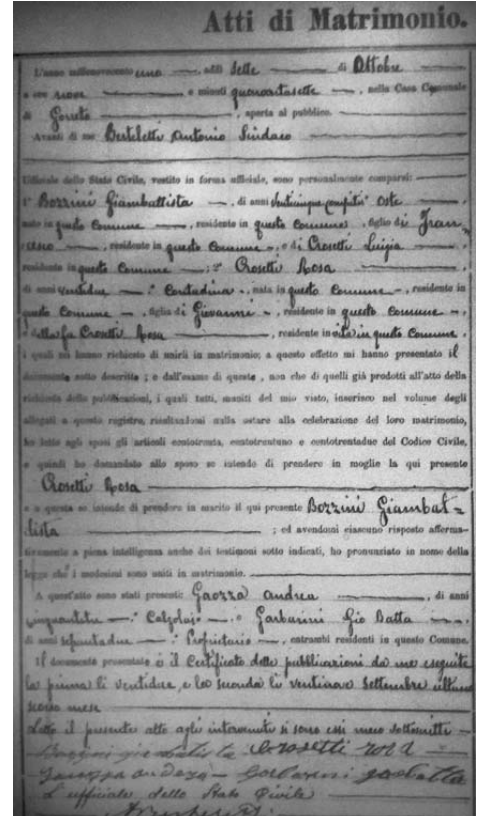 Atti di Matrimonio.
L'anno millenovecento uno, addì sette di Ottobre
a ore nove e minuti quarantasette, nella Casa Comunale
di, aperta al pubblico.
Avanti di me Antonio Sindaco
Uffiziale dello Stato Civile, vestito in forma ufficiale, sono personalmente comparsi:
1° Bozzini Giambattista, di anni venticinque compiti oste
nato in questo Comune, residente in questo Comune, figlio di Fran-
, residente in questo Comune, e di Crosetti Luigia
residente in questo Comune; 2° Crosetti Rosa
di anni ventidue contadina, nata in questo Comune, residente in
questo Comune, figlia di Giovanni, residente in questo Comune,
e della fu Crosetti Rosa, residente in vita in questo Comune,
i quali mi hanno richiesto di unirli in matrimonio; a questo effetto mi hanno presentato il
documento sotto descritto; e dall'esame di questo, non che di quelli già prodotti all'atto della
richiesta delle pubblicazioni, i quali tutti, muniti del mio visto, inserisco nel volume degli
allegati a questo registro, risultandomi nulla ostare alla celebrazione del loro matrimonio,
ho letto agli sposi gli articoli centotrenta, centotrentuno e centotrentadue del Codice Civile,
e quindi ho domandato allo sposo se intende di prendere in moglie la qui presente
Crosetti Rosa
e a questa se intende di prendere in marito il qui presente Bozzini Giambat-
tista; ed avendomi ciascuno risposto afferma-
tivamente a piena intelligenza anche dei testimoni sotto indicati, ho pronunziato in nome della
legge che i medesimi sono uniti in matrimonio.
A quest'atto sono stati presenti: Andrea, di anni
Calzolaio e Garbarini Gio Batta,
di anni settantadue Proprietario, entrambi residenti in questo Comune.
Il documento presentato è il Certificato delle pubblicazioni da me eseguite
la prima li ventidue, e la seconda li ventinove Settembre ultimo
scorso mese
Letto il presente atto agli intervenuti si sono essi meco sottoscritti
Bozzini Crosetti Rosa
Garbarini
L'uffiziale dello Stato Civile